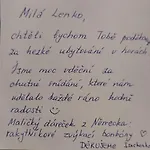 Milá Lenko,
chtěli bychom Tobě poděkovat
za hezké ubytování v horách
Jsme moc vděční za
chutné snídaně, které nám
udělalo každé ráno hodně
radosti ♡
Maličký dáreček z Německa:
rakytníkové žvýkací bonbóny ♡
DĚKUJEME